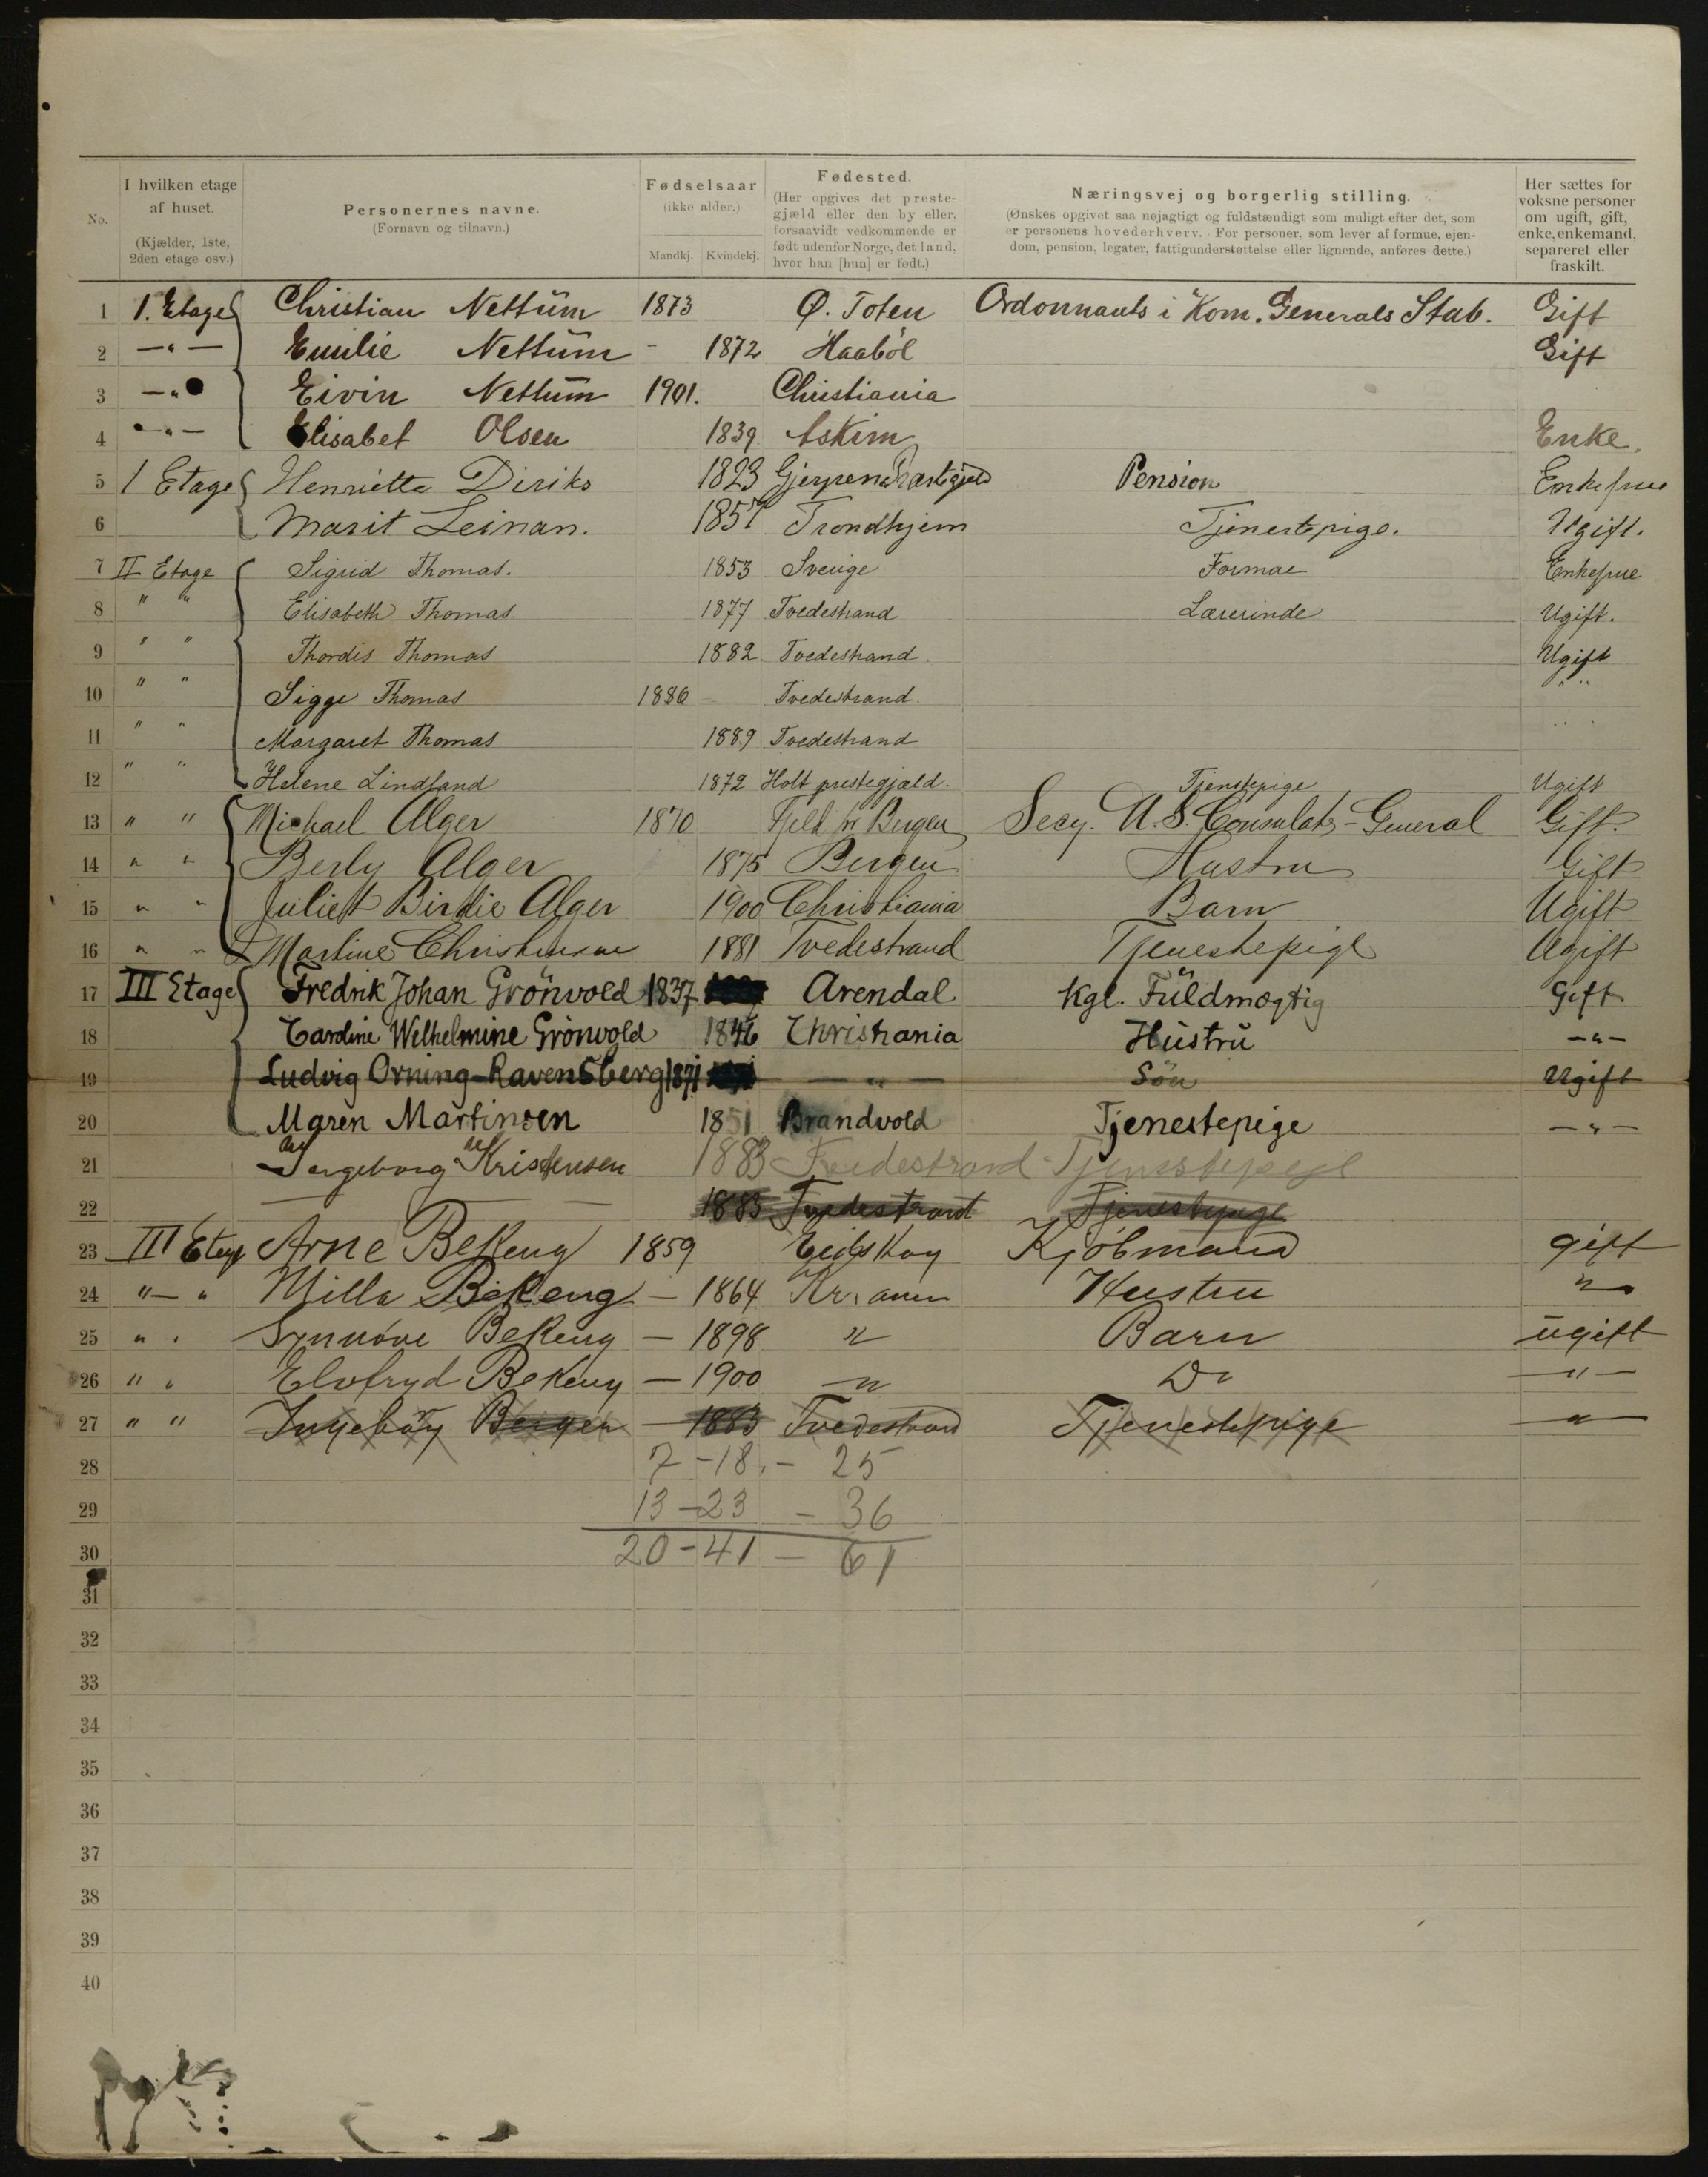 No. I hvilken etage af huset. (Kjælder, 1ste, 2den etage osv.) Personernes navne. (Fornavn og tilnavn.) Fødselsaar (ikke alder.) Mandkj. Kvindekj. Fødested. (Her opgives det prestegjæld eller den by eller, forsaavidt vedkommende er født udenfor Norge, det land, hvor han [hun] er født.) Næringsvej og borgerlig stilling. (Ønskes opgivet saa nøjagtigt og fuldstændigt som muligt efter det, som er personens hovederhverv. For personer, som lever af formue, ejendom, pension, legater, fattigunderstøttelse eller lignende, anføres dette.) Her sættes for voksne personer om ugift, gift, enke, enkemand, separeret eller fraskilt.
1 1. Etage Christian Nettum 1873 Ø. Toten Ordonnants i Kom. Generals Stab. Gift
2 — " — Emilie Nettum - 1872 Haaböl Gift
3 — " Eivin Nettum 1901. Christiania
4 — " — Elisabet Olsen 1839 Askim Enke.
5 1 Etage Henriette Diriks 1823 Gjerpens Præstegjeld Pension Enkefrue
6 Marit Leinan. 1851 Trondhjem Tjenestepige. Ugift.
7 II Etage Sigrid Thomas. 1853 Sverige Formue Enkefrue
8 " " Elisabeth Thomas. 1877 Tvedestrand Lærerinde Ugift.
9 " " Thordis Thomas 1882. Tvedestrand. Ugift
10 " " Sigge Thomas 1886 Tvedestrand. " "
11 " " Margaret Thomas 1889 Tvedestrand " "
12 " " Helene Lindland 1872 Holt prestegjæld. Tjenstepige Ugift
13 " " Michael Alger 1870 Fjeld pr Bergen Secy. U.S. Consulate-General Gift.
14 " " Berly Alger 1875 Bergen Hustru Gift
15 " " Juliet Birdie Alger 1900 Christiania Barn Ugift
16 " " Martine 1881 Tvedestrand Tjenestepige Ugift
17 III Etage Fredrik Johan Grönvold 1837 Arendal Kgl. Fuldmægtig Gift
18 Caroline Welhelmine Grönvold 1846 Christiania Hustru — " —
19 Ludvig Orning-Ravensberg 1871 — " — Sön Ugift
20 Maren Martinsen 1851 Brandvold Tjenestepige — " —
21 Ingeborg Kristensen 1883 Tvedestrand Tjenestepige
22 1883 Tvedestrand Tjenestepige
23 III Etage Arne Bekeng 1859 Eidskog Kjöbmand gift
24 " — " Milla Bekeng — 1864 Hustru "
25 " " Synnöve Bekeng — 1898 " Barn ugift
26 " " Elvfryd Bekeng — 1900 — " Do — " —
27 " " Ingeborg — 1883 Tvedestrand Tjenestepige — " —
28 7 - 18. - 25
29 13 - 23 - 36
30 20 - 41 - 61
31
32
33
34
35
36
37
38
39
40